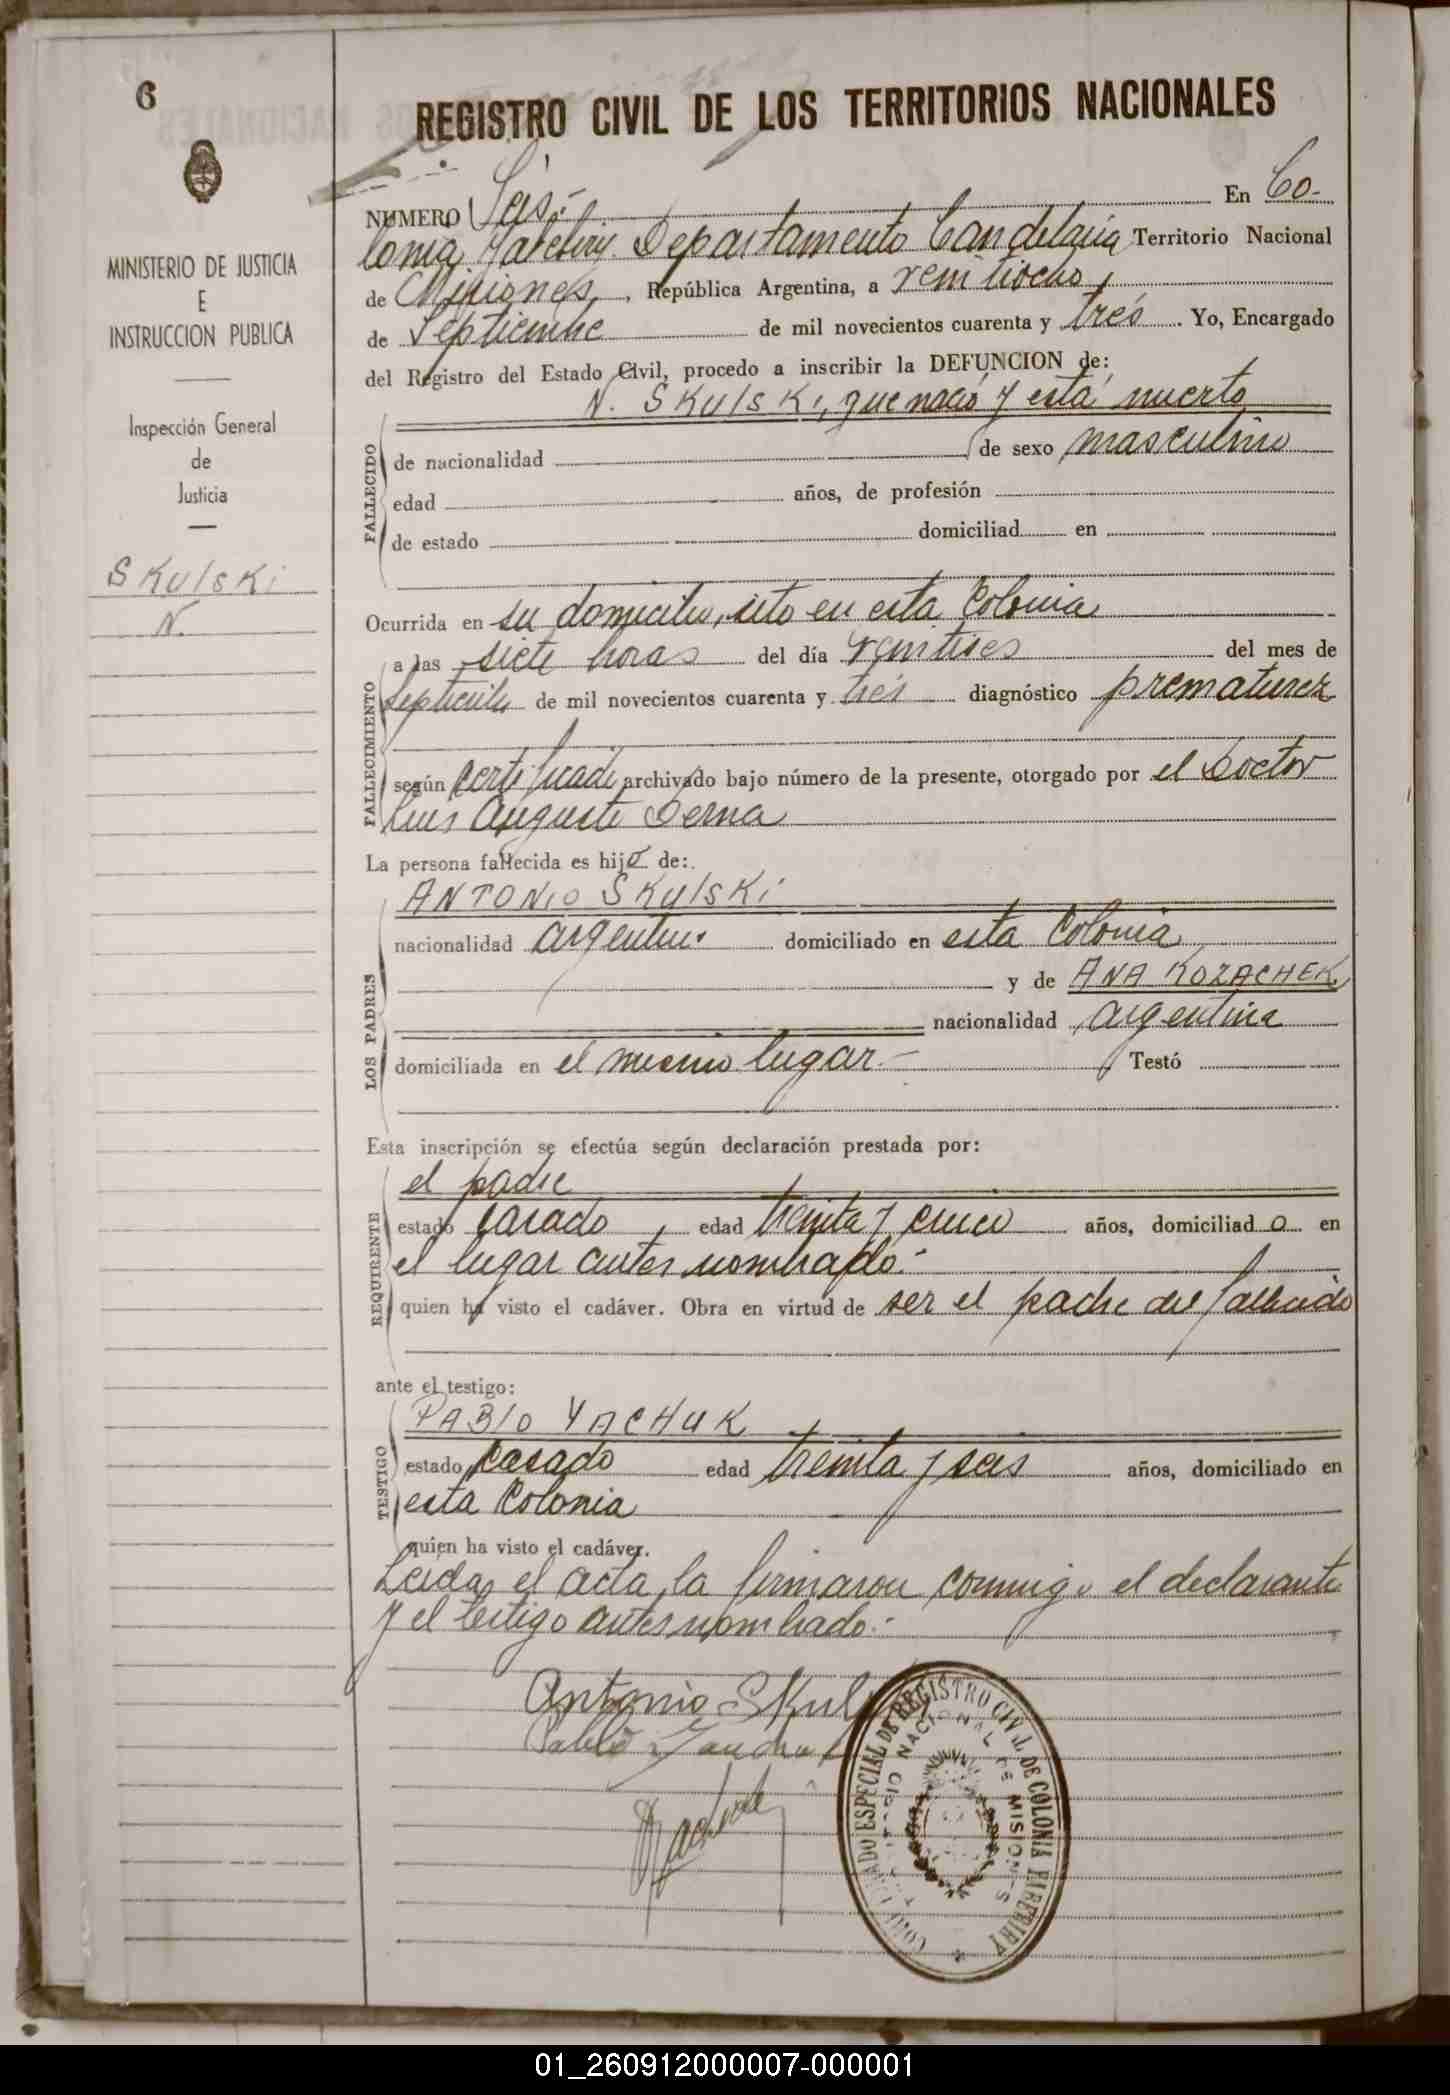 6
REGISTRO CIVIL DE LOS TERRITORIOS NACIONALES
MINISTERIO DE JUSTICIA
E
INSTRUCCION PUBLICA
Inspección General
de
Justicia
SKulSKi
N.
NUMERO Seis.- En Co-
lonia Departamento Candelaria Territorio Nacional
de Misiones, República Argentina, a veintiocho
de Septiembre de mil novecientos cuarenta y trés. Yo, Encargado
del Registro del Estado Civil, procedo a inscribir la DEFUNCION de:
N. SKulSKi, que nació y está muerto
FALLECIDO
de nacionalidad de sexo masculino
edad años, de profesión
de estado domiciliad en
Ocurrida en su domicilio, sito en esta Colonia
FALLECIMIENTO
a las siete horas del día del mes de
Septiembre de mil novecientos cuarenta y trés diagnóstico prematurez
según certificado archivado bajo número de la presente, otorgado por el Doctor
Luis Augusto Derna
La persona fallecida es hijo de:
LOS PADRES
ANTONIO SKulSKi
nacionalidad argentino domiciliado en esta Colonia
y de ANA KOZACHEK
nacionalidad argentina
domiciliada en el mismo lugar.- Testó
Esta inscripción se efectúa según declaración prestada por:
REQUIRENTE
el padre
estado casado, edad treinta y cinco años, domiciliad o en
el lugar antes nombrado.-
quien ha visto el cadáver. Obra en virtud de ser el padre del fallecido
ante el testigo:
TESTIGO
PABlO YACHUK
estado casado edad treinta y seis años, domiciliado en
esta Colonia
quien ha visto el cadáver.
Leida el acta, la firmaron conmigo el declarante
y el testigo antes nombrado.-
Antonio SKul
Pablo
ESPECIAL DE REGISTRO CIVIL DE COLONIA
NACIONAL DE MISIONES
01_260912000007-000001